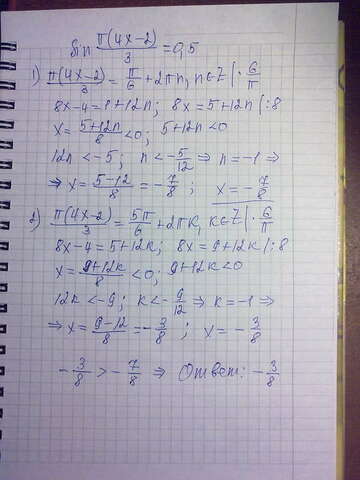 sin π(4x-2)/3 = 0,5
1) π(4x-2)/3 = π/6 + 2πn, n∈Z |: 6/π
8x-4=1+12n; 8x=5+12n |:8
x = (5+12n)/8 < 0; 5+12n<0
12n < -5; n < -5/12 ⇒ n=-1 ⇒
⇒ x = (5-12)/8 = -7/8; x = -7/8
2) π(4x-2)/3 = 5π/6 + 2πк, к∈Z |: 6/π
8x-4=5+12к; 8x=9+12к |:8
x = (9+12к)/8 < 0; 9+12к<0
12к < -9; к < -9/12 ⇒ к=-1 ⇒
⇒ x = (9-12)/8 = -3/8; x = -3/8
-3/8 > -7/8 ⇒ Ответ: -3/8